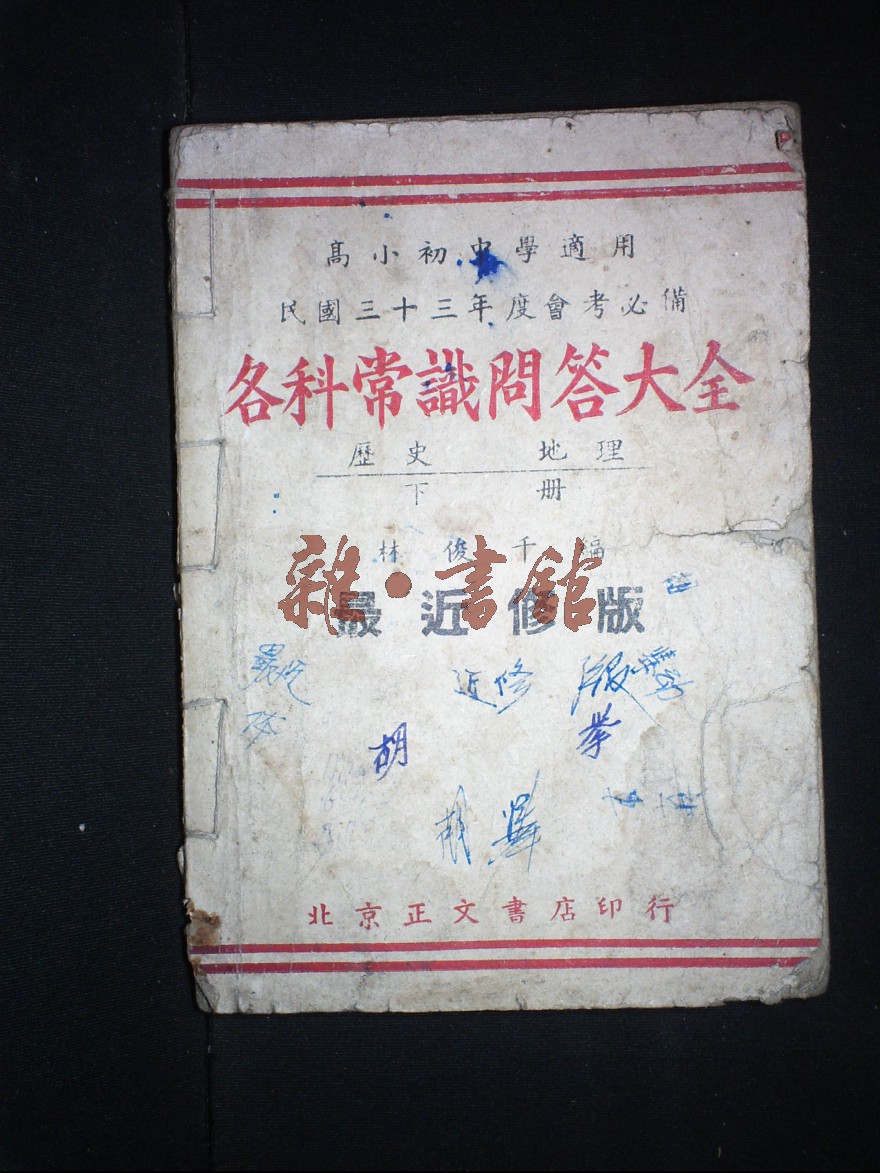 高小初中學適用
民國三十三年度會考必備
各科常識問答大全
歷史 地理
下 册
林俊千編
雜·書館
最近修版
近修 版
胡
北京正文書店印行